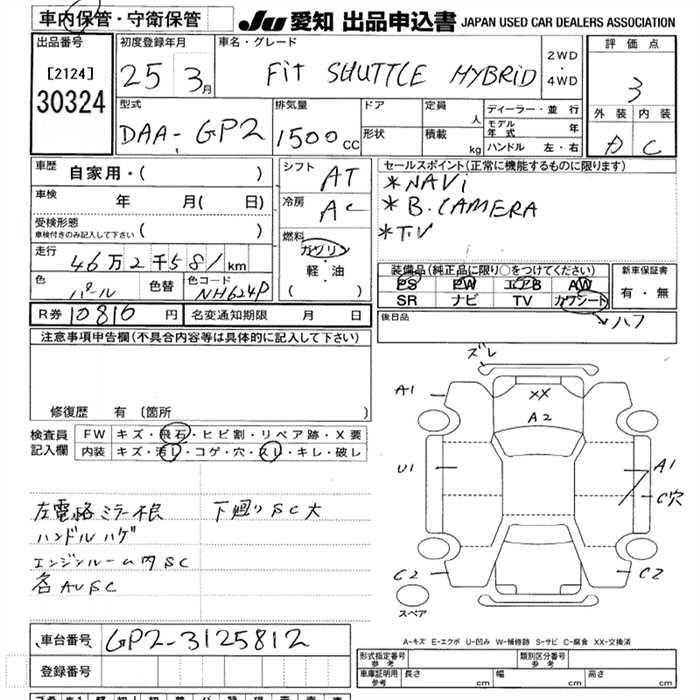 車内保管・守衛保管
JU 愛知 出品申込書 JAPAN USED CAR DEALERS ASSOCIATION
出品番号
[2124]
30324
初度登録年月
25 3月
車名・グレード
Fit SHUTTLE HYBRID
2WD
・
4WD
評価点
3
外装 内装
D C
型式
DAA-GP2
排気量
1500cc
ドア
形状
定員
人
積載
kg
ディーラー・並行
モデル年式 年
ハンドル 左・右
車歴
自家用・( )
車検
年 月( 日)
受検形態
車検付きのみ記入して下さい ( )
走行
46万2千581km
色
パール
色替
色コード
NH624P
シフト
AT
冷房
AC
燃料
ガソリン
・
軽・油
( )
セールスポイント(正常に機能するものに限ります)
*NAVi
*B.CAMERA
*TV
装備品(純正品に限り○をつけてください)
PS PW エアB AW
SR ナビ TV カワシート
ハフ
新車保証書
有・無
後日品
R券 10810円
名変通知期限 月 日
注意事項申告欄(不具合内容等は具体的に記入して下さい)
修復歴 有 (箇所 )
検査員記入欄
FW キズ・飛石・ヒビ割・リペア跡・X要
内装 キズ・汚レ・コゲ・穴・スレ・キレ・破レ
左電格ミラー根 下廻りSC大
ハンドルハゲ
エンジンルーム内SC
各AUSC
ズレ
A1
XX
A2
U1
A1
C穴
C2
C2
スペア
A-キズ E-エクボ U-凹み W-補修跡 S-サビ C-腐食 XX-交換済
車台番号
GP2-3125812
登録番号
形式指定番号
参考
類別区分番号
参考
車庫証明用
参考
長さ cm
幅 cm
高さ cm